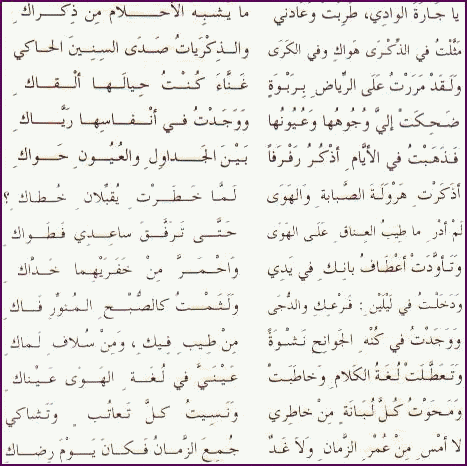 يا جَارَةَ الوادِي، طَرِبْتُ وَعَادَنِي ما يُشْبِهُ الأَحْلَامَ مِنْ ذِكْرَاكِ
مَثَّلْتُ في الذِّكْرَى هَواكِ وَفي الكَرَى والذِّكْرَيَاتُ صَدَى السِنِينَ الحَاكي
وَلَقَدْ مَرَرْتُ عَلَى الرِّيَاضِ بِرَبْوَةٍ غَنَّاءَ كُنْتُ حِيالَهَا أَلْقَاكِ
ضَحِكَتْ إِلَيَّ وُجُوهُها وَعُيُونُها وَوَجَدْتُ في أَنْفَاسِها رَيَّاكِ
فَذَهَبْتُ في الأَيَّامِ أَذْكُرُ رَفْرَفاً بَيْنَ الجَدَاوِلِ وَالعُيُونِ حَوَاكِ
أَذَكَرْتِ هَرْوَلَةَ الصَّبابَةِ وَالهَوَى لَمَّا خَطَرْتِ يُقَبِّلَانِ خُطَاكِ؟
لَمْ أَدْرِ ما طِيبُ العِنَاقِ عَلَى الهَوَى حَتَّى تَرَفَّقَ سَاعِدِي فَطَوَاكِ
وَتَأَوَّدَتْ أَعْطَافُ بانِكِ في يَدِي وَاحْمَرَّ مِنْ خَفَرَيْهِما خَدَّاكِ
وَدَخَلْتُ في لَيْلَيْنِ: فَرْعِكِ وَالدُّجَى وَلَثَمْتُ كالصُّبْحِ المُنَوِّرِ فَاكِ
وَوَجَدْتُ في كُنْهِ الجَوانِحِ نَشْوَةً مِنْ طِيبِ فِيكِ، وَمِنْ سُلَافِ لَمَاكِ
وَتَعَطَّلَتْ لُغَةُ الكَلَامِ وَخَاطَبَتْ عَيْنَيَّ في لُغَةِ الهَوَى عَيْنَاكِ
وَمَحَوْتُ كُلَّ لُبَانَةٍ مِنْ خَاطِرِي وَنَسِيتُ كُلَّ تَعَاتُبٍ وَتَشَاكِي
لا أَمْسِ مِنْ عُمْرِ الزَّمانِ وَلَا غَدٌ جُمِعَ الزَّمَانُ فَكَانَ يَوْمَ رِضَاكِ